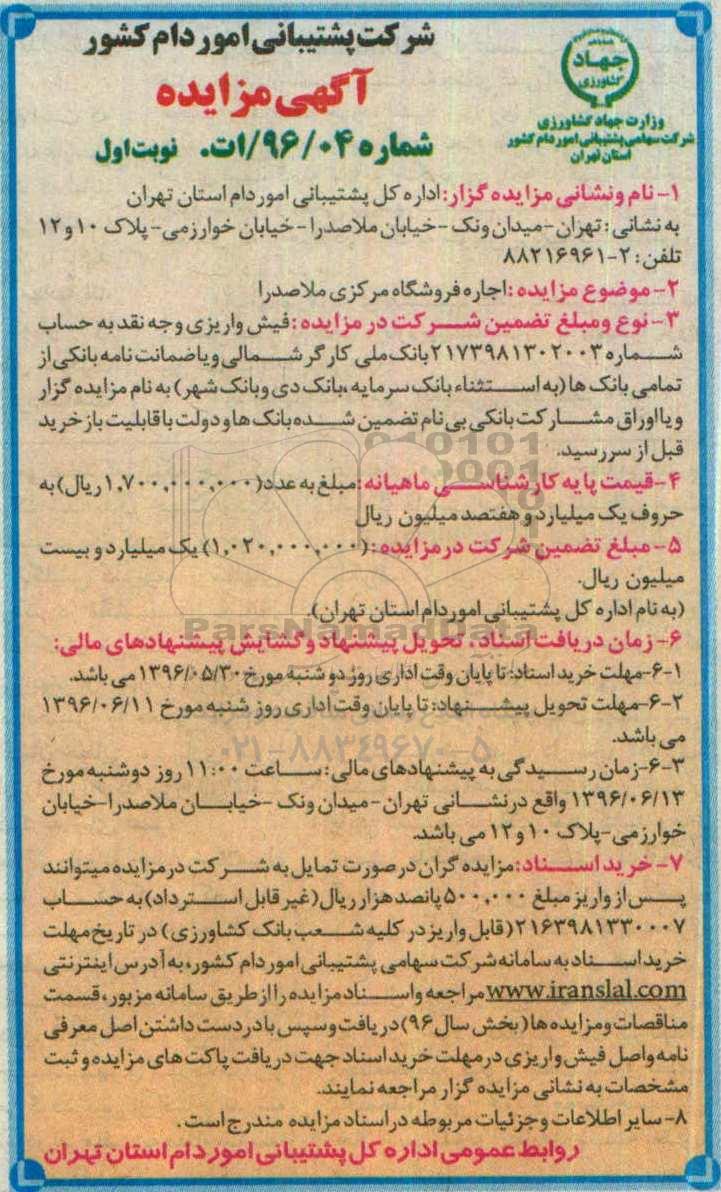 شرکت پشتیبانی امور دام کشور
آگهی مزایده
شماره ۹۶/۰۴/ات. نوبت اول
جهاد
کشاورزی
وزارت جهاد کشاورزی
شرکت سهامی پشتیبانی امور دام کشور
استان تهران
۱- نام ونشانی مزایده گزار: اداره کل پشتیبانی اموردام استان تهران
به نشانی: تهران -میدان ونک -خیابان ملاصدرا -خیابان خوارزمی- پلاک ۱۰ و ۱۲
تلفن: ۲-۸۸۲۱۶۹۶۱
۲- موضوع مزایده: اجاره فروشگاه مرکزی ملاصدرا
۳- نوع ومبلغ تضمین شرکت در مزایده: فیش واریزی وجه نقد به حساب
شماره ۲۱۷۳۹۸۱۳۰۲۰۰۳ بانک ملی کارگر شمالی و یا ضمانت نامه بانکی از
تمامی بانک ها (به استثناء بانک سرمایه، بانک دی و بانک شهر) به نام مزایده گزار
و یا اوراق مشارکت بانکی بی نام تضمین شده بانک ها و دولت با قابلیت باز خرید
قبل از سررسید.
۴- قیمت پایه کارشناسی ماهیانه: مبلغ به عدد (۱,۷۰۰,۰۰۰,۰۰۰ ریال) به
حروف یک میلیارد و هفتصد میلیون ریال
۵- مبلغ تضمین شرکت در مزایده: (۱,۰۲۰,۰۰۰,۰۰۰) یک میلیارد و بیست
میلیون ریال.
(به نام اداره کل پشتیبانی امور دام استان تهران).
ParsNamadData
۶- زمان دریافت اسناد، تحویل پیشنهاد و گشایش پیشنهادهای مالی:
۶-۱-مهلت خرید اسناد: تا پایان وقت اداری روز دو شنبه مورخ ۱۳۹۶/۰۵/۳۰ می باشد.
۶-۲-مهلت تحویل پیشنهاد: تا پایان وقت اداری روز شنبه مورخ ۱۳۹۶/۰۶/۱۱
می باشد.
۰۲۱-۸۸۳۴۹۶۷۰-۵
۶-۳-زمان رسیدگی به پیشنهادهای مالی: ساعت ۱۱:۰۰ روز دوشنبه مورخ
۱۳۹۶/۰۶/۱۳ واقع در نشانی تهران -میدان ونک -خیابان ملاصدرا-خیابان
خوارزمی-پلاک ۱۰ و ۱۲ می باشد.
۷- خرید اسناد: مزایده گران در صورت تمایل به شرکت در مزایده میتوانند
پس از واریز مبلغ ۵۰۰,۰۰۰ پانصد هزار ریال (غیر قابل استرداد) به حساب
۲۱۶۳۹۸۱۳۳۰۰۰۷ (قابل واریز در کلیه شعب بانک کشاورزی) در تاریخ مهلت
خرید اسناد به سامانه شرکت سهامی پشتیبانی امور دام کشور، به آدرس اینترنتی
www.iranslal.com مراجعه و اسناد مزایده را از طریق سامانه مزبور، قسمت
مناقصات و مزایده ها (بخش سال ۹۶) دریافت و سپس با در دست داشتن اصل معرفی
نامه و اصل فیش واریزی در مهلت خرید اسناد جهت دریافت پاکت های مزایده و ثبت
مشخصات به نشانی مزایده گزار مراجعه نمایند.
۸- سایر اطلاعات و جزئیات مربوطه در اسناد مزایده مندرج است.
روابط عمومی اداره کل پشتیبانی امور دام استان تهران